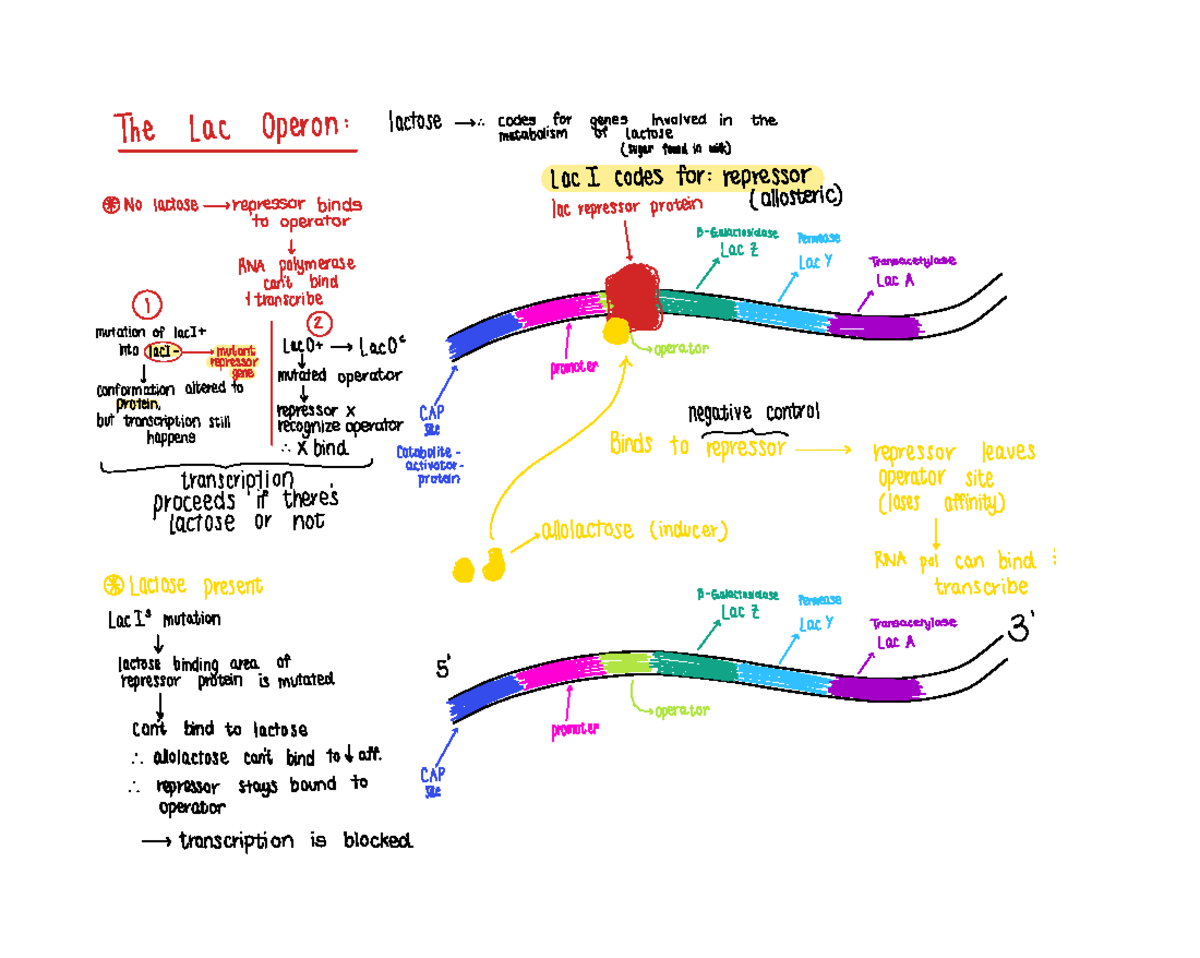 The Lac Operon:
lactose → ∴ codes for genes involved in the
metabolism of lactose
(sugar found in milk)
Lac I codes for: repressor
(allosteric)
lac repressor protein
⊛ No lactose → repressor binds
to operator
↓
RNA polymerase
can't bind
+ transcribe
①
mutation of lacI+
into lacI- → mutant
repressor
gene
↓
conformation altered to
protein,
but transcription still
happens
②
LacO+ → LacOᶜ
↓
mutated operator
↓
repressor x
recognize operator
∴ x bind
transcription
proceeds if there's
lactose or not
β-Galactosidase
Lac Z
Permease
Lac Y
Transacetylase
Lac A
operator
promoter
CAP
site
Catabolite-
activator-
protein
negative control
Binds to repressor → repressor leaves
operator site
(loses affinity)
↓
RNA pol can bind
transcribe
allolactose (inducer)
⊛ Lactose present
Lac Iˢ mutation
↓
lactose binding area of
repressor protein is mutated
↓
can't bind to lactose
∴ allolactose can't bind to ↓ aff.
∴ repressor stays bound to
operator
→ transcription is blocked
β-Galactosidase
Lac Z
Permease
Lac Y
Transacetylase
Lac A
3'
5'
operator
promoter
CAP
site